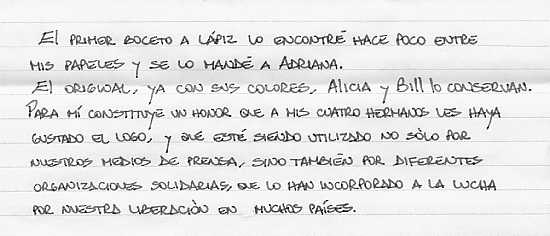 El PRIMER BOCETO A LÁPIZ LO ENCONTRÉ HACE POCO ENTRE
MIS PAPELES Y SE LO MANDÉ A ADRIANA.
El ORIGINAL, YA CON SUS COLORES, Alicia y Bill lo CONSERVAN.
PARA MÍ CONSTITUYE UN HONOR QUE A MIS CUATRO HERMANOS LES HAYA
GUSTADO EL LOGO, Y QUE ESTÉ SIENDO UTILIZADO NO SÓLO POR
NUESTROS MEDIOS DE PRENSA, SINO TAMBIÉN POR DIFERENTES
ORGANIZACIONES SOLIDARIAS, QUE LO HAN INCORPORADO A LA LUCHA
POR NUESTRA LIBERACIÓN EN MUCHOS PAÍSES.